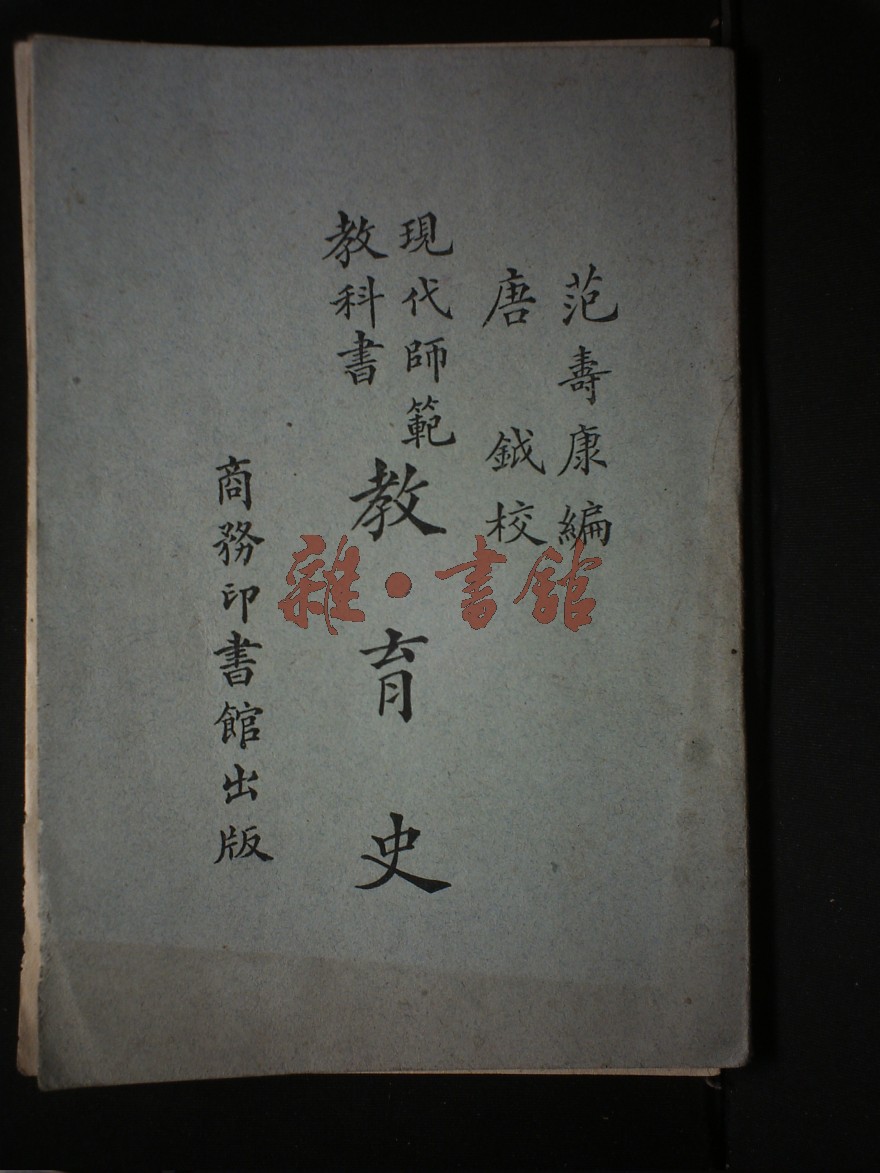 范壽康編
唐鉞校
現代師範
教科書
教育史
商務印書館出版
雜·書館